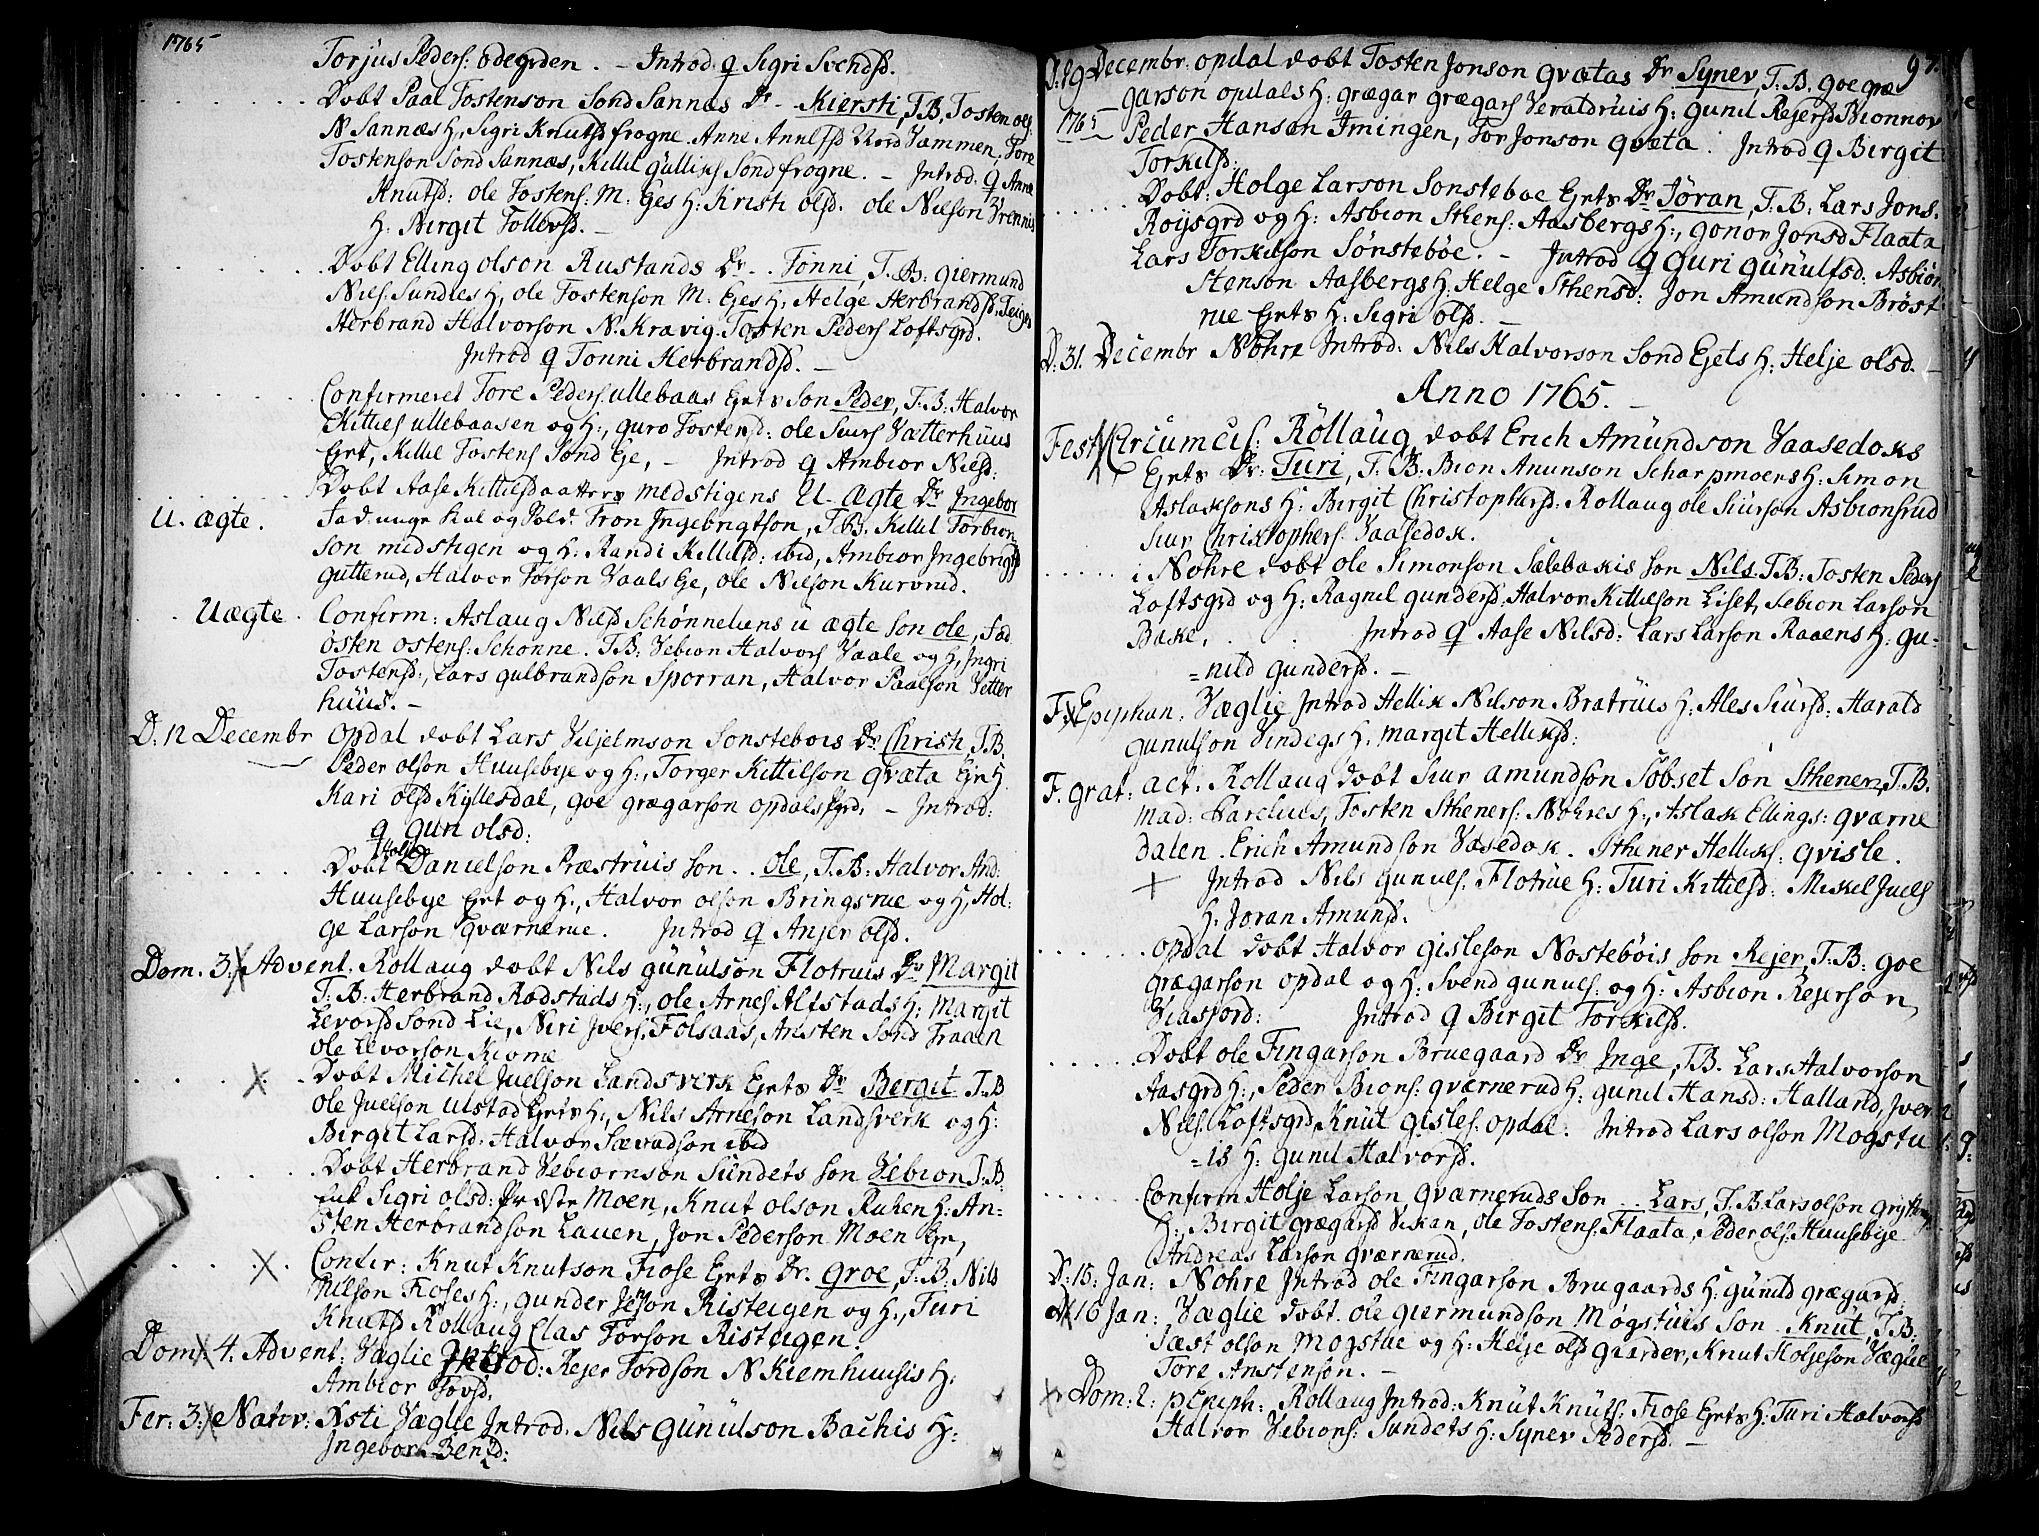 1765
Torjus Peders: ødegrden. – Introd. Q Sigri Svendsd.
Døbt Paal Tostenson Sønd Sannæs Dr – Kiersti, T.B. Tosten ols:
N Sannæs H, Sigri Knutsd frogne. Anne Annsd Nord Vammen, Tore
Tostenson Sond Sannæs, Killil Gulliks Sond frogne. – Introd. Q Anne
Knutsd: ole Tostens: M: Ges H: Kristi olsd. ole Nilson Vrennis
H. Birgit Tollevsd. –
Døbt Elling olson Rustands Dr. Tonni, T.B: Giermund
Nils: Sundies H, ole Tostenson M. Ejes H, Helge Herbrandsd, Teigen
Herbrand Halvorson N. Kravig. Tosten Peders Loftsgrd.
Introd Q Tonni Herbrandsd. –
Confirmeret Tore Peders: ullebaas Ejets Son Peder, T.B: Halvor
Kitties ullebaasen og H:, guro Tostensd: ole Siurs Vætterhuus
Ejet, Killil Tostens Sond Eje, – Introd Q Ambior Nilsd:
Døbt Aase Kittilsdaatters medstigens U-ægte Dr Ingebor
U. ægte. Fad: unge Kal og Sold: Tron Ingebrigtson, T.B: Killil Torbion
son medstigen og H: Randi Killilsd: ibid, Ambior Ingebrigtsd
gutterud, Halvor Torson Vaals Eje, ole Nilson Kurvrud.
Uægte. Confirm: Aslaug Nilsd Schønneliens u ægte son ole, Fad
østen ostens: Schønne. T.B: Vebion Halvors Vaale og H, Ingri
Tostensd:, Lars gulbrandson Sporran, Halvor Paalson Vetter
huus. –
D: 12 Decembr Opdal døbt Lars Viljelmson Sonstebøis Dr: Christi, T.B.
Peder olson Huusebye og H:, Torger Kittilson Qvæta Ejeh
Kari olsd Kyllesdal, goe grægarson opdals Pgrd, – Introd:
Q gun olsd:
Døbt Holje Danielson Præstruis son. . ole, T.B: Halvor And:
Huusebye Ejet og H:, Halvor olson Bringsrue og H, Hol:
ge Larson Qværnerue. Introd Q Anjer olsd.
Dom. 3. X Advent. Rollaug døbt Nils gunulson Flotruis Dr Margit
T.B: Herbrand Rødstads H:, ole Arnes Alfstads H: Margit
Levorsd Sond Lie, Niri Ivers: Folsaas, Ansten Sond Traaen
ole Levorson Kiome
Døbt Michel Juelson Landsverk Ejets Dr Bergit T.B
ole Juelson ulstad Ejets H:, Nils Arneson Landsverk og H:
Birgit Larsd: Halvor Sævadson ibid
Døbt Herbrand Vebiornson Sundets son Vebion T.B:
Enk Sigri olsd: Præste Moen, Knut olson Ruhen H: An=
sten Herbrandson Lauen, Jon Pederson Moen Eje,
Confir: Knut Knutson Fiose Ejets Dr. groe, T.B. Nils
Nilson Fioses H:, gunder Jeson Risteigen og H., Turi
Knutsd Rollaug Clas Torson Risteigen.
Dom X 4. Advent: Væglie Introd: Rejer Tordson N Kiemhuusis H:
Ambior Torsd.
Fer: 3: X Nativ: Xsti Væglie Introd. Nils Gunulson Bachis H:
Ingebor Bendsd:
97.
D: 19 Decembr: opdal døbt Tosten Jonson Qvætas Dr Synev, T.B. goe græ
1765 garson opdals H: grægar grægars Veraldruis H: Gunil Rejersd Bionnor
Peder Hanson Imingen, Tor Jonson Qvæta. Introd Q Birgit
Torkilsd:
Døbt: Holge Larson Sonsteboe Ejets Dr Jøran, T.B: Lars Jons.
Roijsgrd og H: Asbion Sthens: Aasbergs H:, gonor Jonsd Flaata
Lars Torkilson Sønstebøe. – Introd Q Guri Gunulfsd. Asbiøn
Stenson Aasbergs H. Helge Sthensd: Jon Amundson Brøst
rue Ejets H: Sigri olsd. –
D: 31. Decembr Nohre Introd: Nils Halvorson Sond Ejets H: Helje olsd. –
Anno 1765. –
Fest X Circumcis: Røllaug døbt Erich Amundson Vaasedoks
Ejets Dr: Turi, T.B. Bion Anunson Scharpmoers H: Simon
Aslaksons H: Birgit Christophersd. Rollaug ole Siurson Asbionsrud
Siur Christophers: Vaasedok.
i Nohre døbt ole Simonson Sælebakis son Nils. T.B: Tosten Peders
Loftsgrd og H: Ragnil gundersd, Halvor Kittilson Liset, Sebion Larson
Bake. . . Introd Q Aase Nilsd: Lars Larson Raaens H: gu=
=nild gundersd. –
F. X Epiphan: Væglie Introd Hellik Nilson Bratruis H: Ales Siursd: Harald
Gunulson Vindegs H: Margit Helliksd:
F. grat: act: Rollaug døbt Siur amundson Søbset Son Sthener, T.B.
mad: Parelius, Tosten Stheners: Nohres H:, Aslak Ellings: Qværne
dalen. Erich Amundson Vasedok. Sthener Helliks: Qvisle.
+ Introd Nils Gunuls: Flotrue H: Turi Kittilsd: Mickel Juels
H: Joran Amundsd.
opdal døbt Halvor Gisleson Nostebøis son Rejer, T.B: Goe
grægarson opdal og H: Svend gunuls: og H: Asbion Rejerson
Viasjord: Introd Q Birgit Torkilsd.
Døbt ole Fingarson Bruegaard Dr Inge, T.B. Lars Halvorson
Aasgrd H:, Peder Bions: Qværnerud H: gunil Hansd: Halland, Iver
Nils. Loftsgrd, Knut Gisles: opdal. Introd Lars olson Mogstu
=is H: Gunil Halvorsd.
Confirm Holje Larson Qværneruds son .. Lars, T.B. Lars olson
H: Birgit Grægarsd Vikan, ole Tostens: Flaata, Peder ols: Huusebye
Andreas Larson Qværnerud.
D: 15: Jan: Nohre Introd ole Fingarson Brugaards H: Gunild Grægarsd:
D X 16 Jan: Væglie døbt. ole Giermundson Møgstuis Son. Knut, T.B.
Sæst olson Mogstue og H: Helje olsd giarder, Knut Holjeson Væglie
Tore Anstenson. –
X Dom: 2: p Epiph: Rollaug Introd: Knut Knuts: Fiose Ejets H: Turi Halvorsd
Halvor Vebions: Sundets H: Synev Pedersd. –